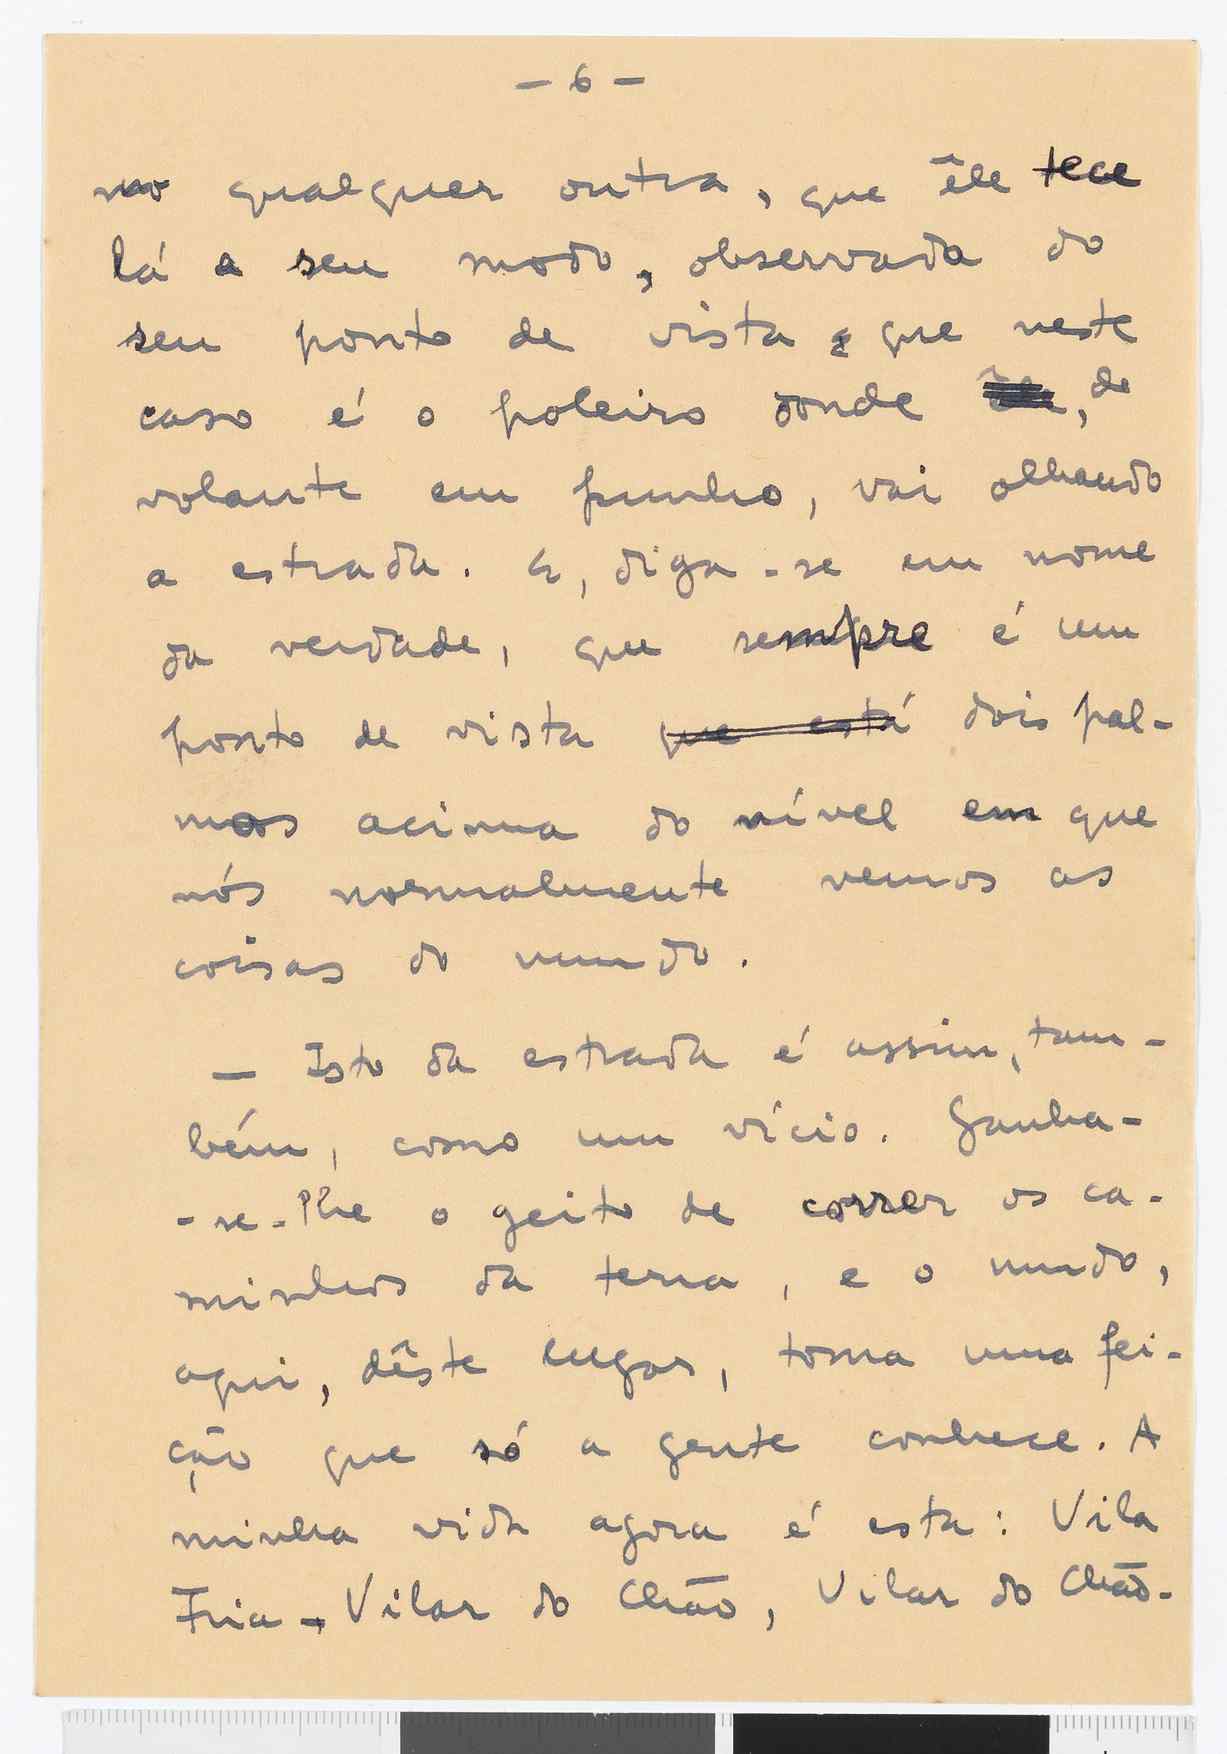 - 6 -
mo qualquer outra, que êle tece
lá a seu modo, observada do
seu ponto de vista, que neste
caso é o poleiro donde, de
volante em punho, vai olhando
a estrada. E, diga-se em nome
da verdade, que sempre é um
ponto de vista que está dois pal-
mos acima do nível em que
nós normalmente vemos as
coisas do mundo.
— Isto da estrada é assim, tam-
bém, como um vício. Ganha-
-se-lhe o geito de correr os ca-
minhos da terra, e o mundo,
aqui, dêste lugar, toma uma fei-
ção que só a gente conhece. A
minha vida agora é esta: Vila
Fria - Vilar do Chão, Vilar do Chão-